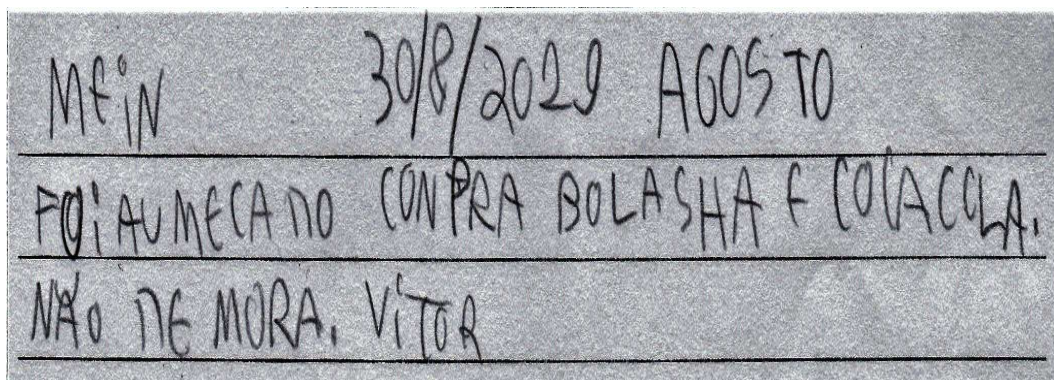 MEiN 30/8/2029 AGOSTO
FOi AUMECADO CONPRA BOLASHA E COCACOLA.
NÃO DEMORA. ViTOR